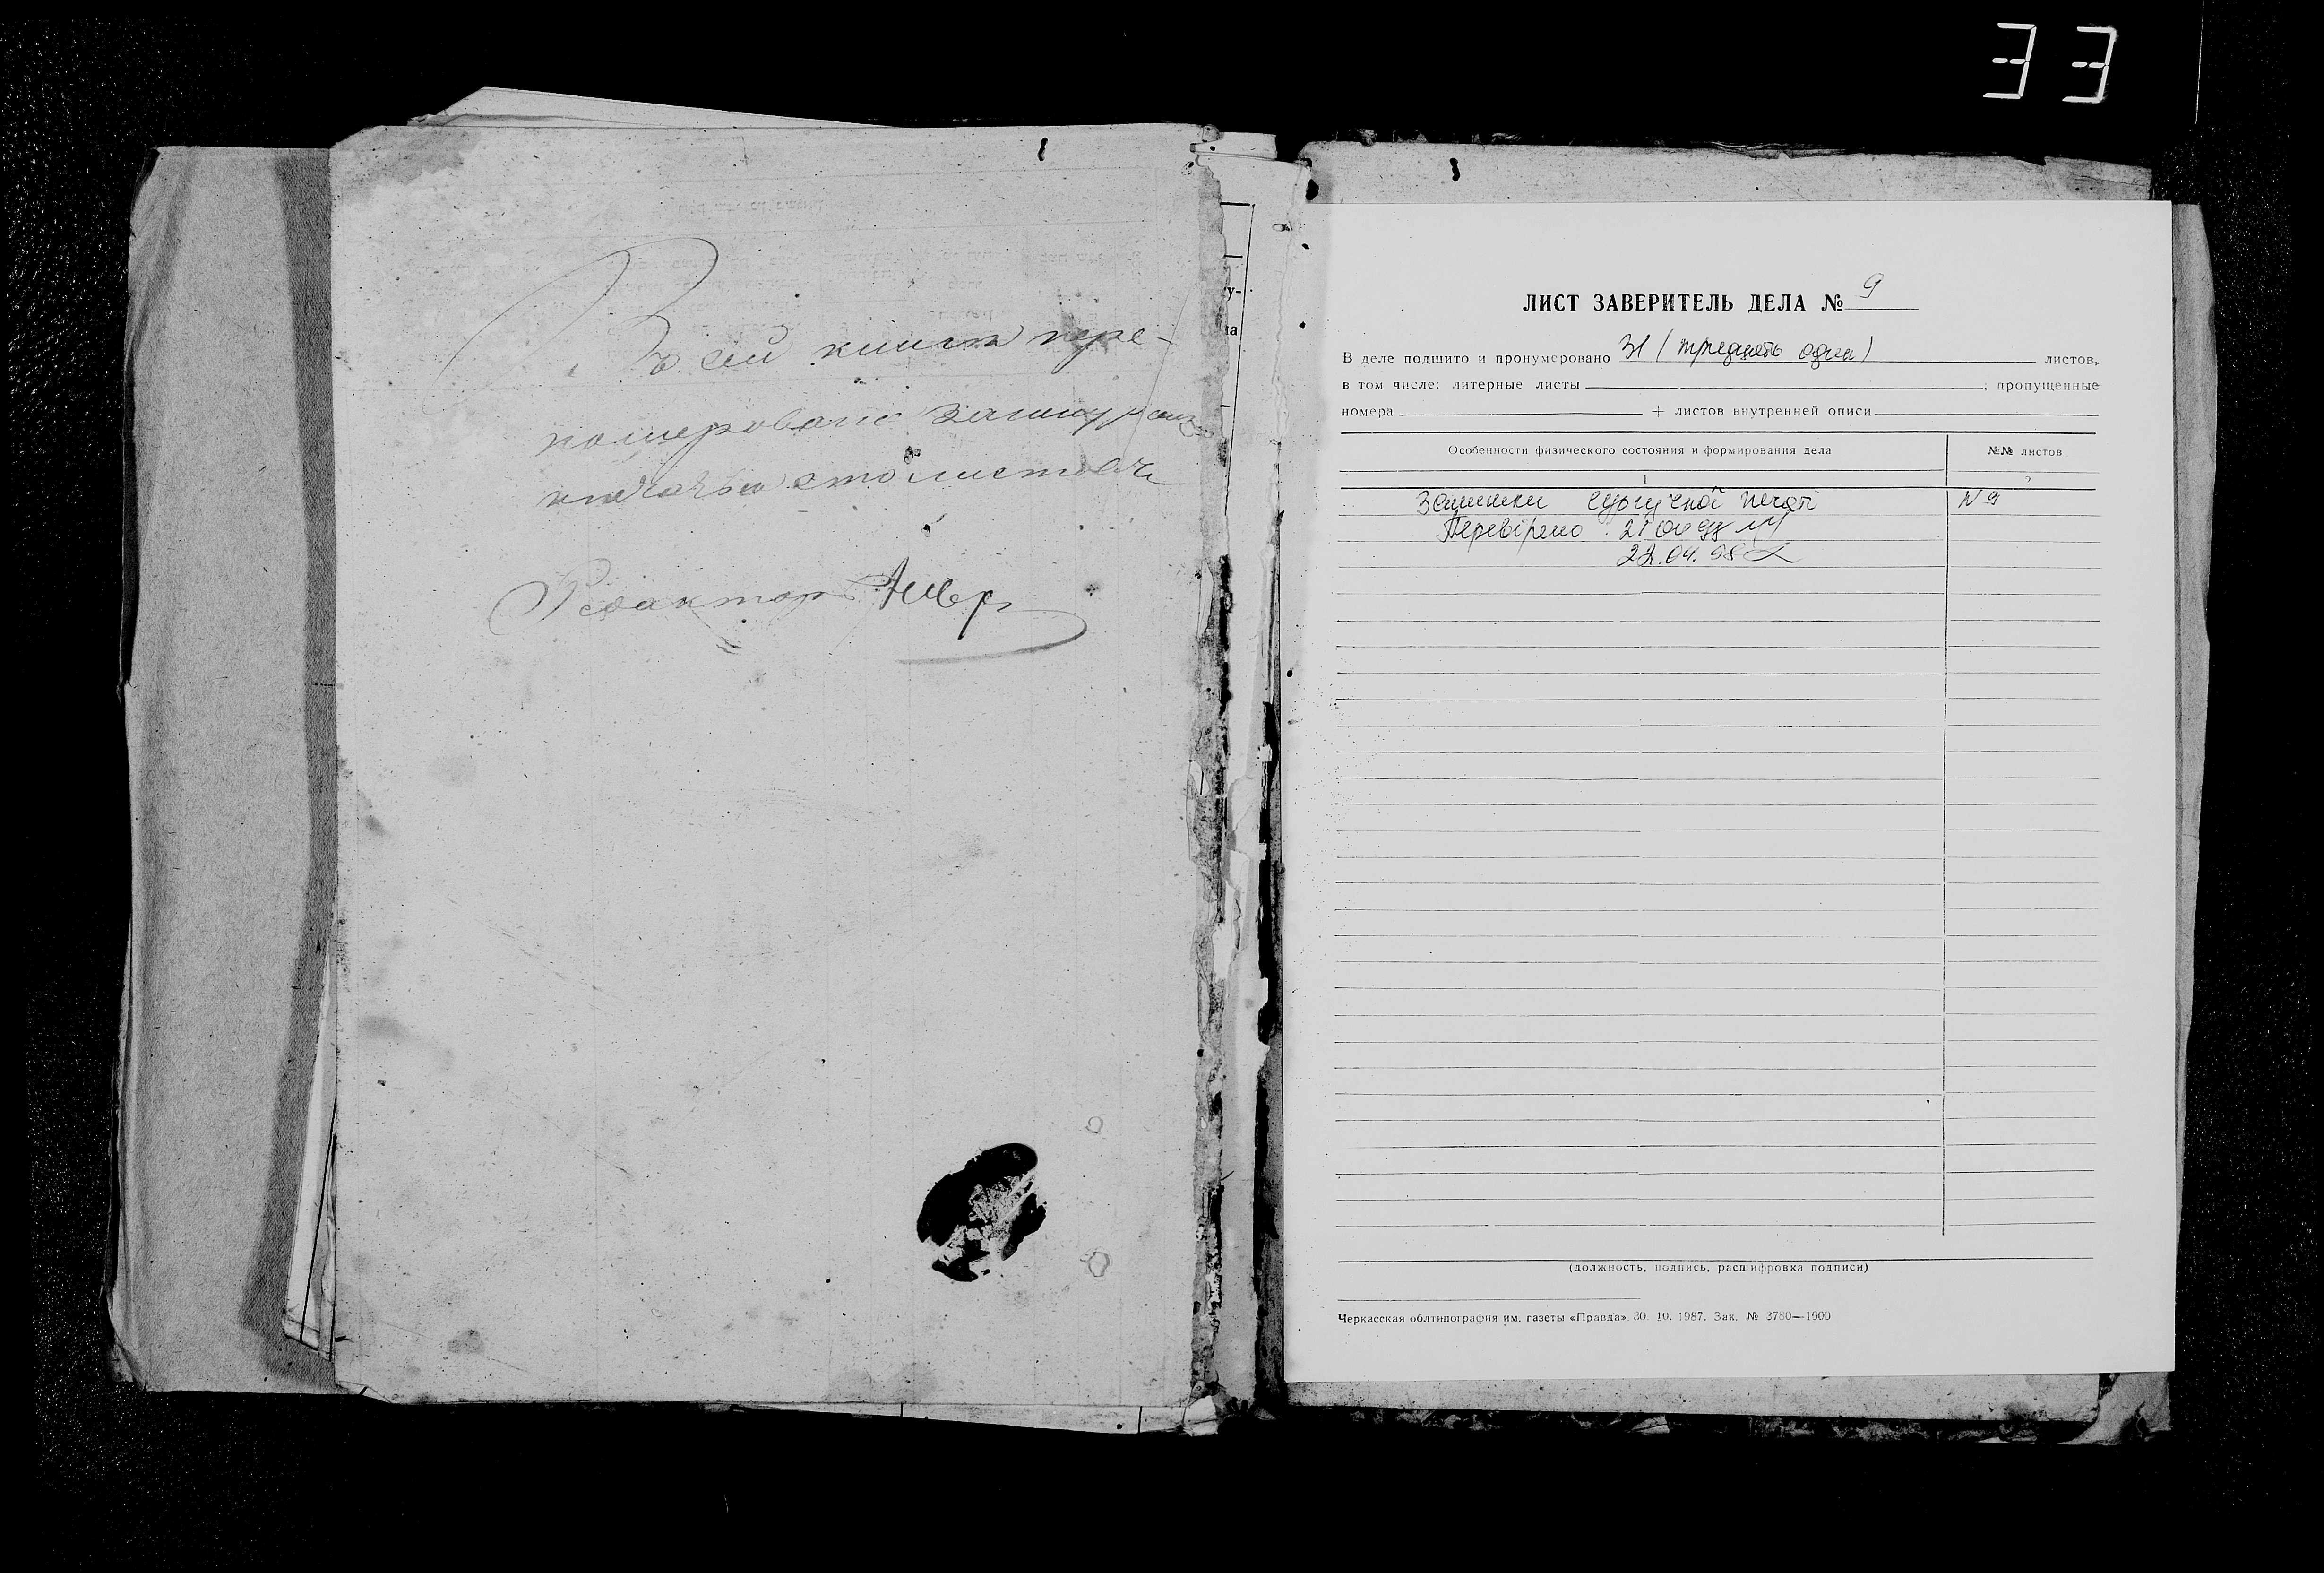 33
Въ сей книгѣ пере-
номеровано зашнуро
печатью сто листовъ
Редакторъ
ЛИСТ ЗАВЕРИТЕЛЬ ДЕЛА № 9
В деле подшито и пронумеровано 31 (тридцать один) листов,
в том числе: литерные листы ; пропущенные
номера + листов внутренней описи
Особенности физического состояния и формирования дела №№ листов
1 2
Залишки сургучної печаті N 9
Перевірено 21
22.04.98
(должность, подпись, расшифровка подписи)
Черкасская облтипография им. газеты «Правда» 30. 10. 1987. Зак. № 3780—1000
у-
на